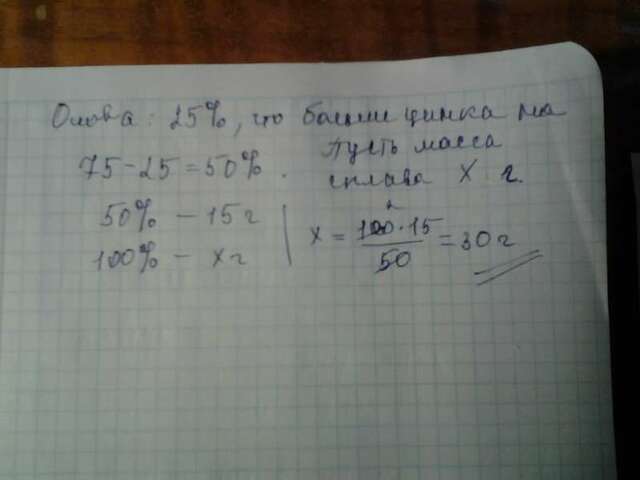 Олова: 25%, что больше цинка на
75-25=50%. Пусть масса
сплава x г.
50% - 15 г
100% - x г
x = 100·15 / 50 = 30 г